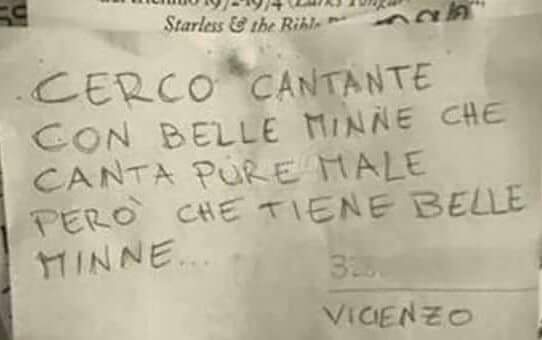 1972-1974
Starless & the
CERCO CANTANTE
CON BELLE MINNE CHE
CANTA PURE MALE
PERÒ CHE TIENE BELLE
MINNE...
VICIENZO